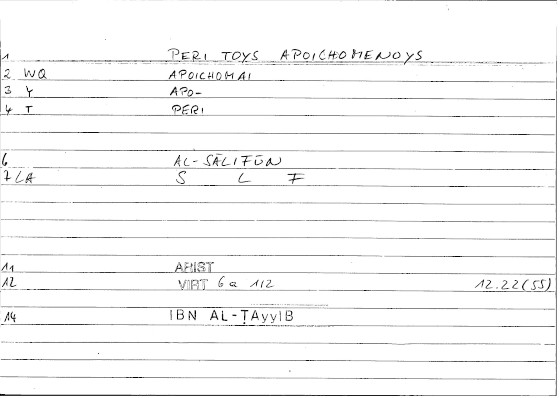 1 PERI TOYS APOICHOMENOYS
2 WQ APOICHOMAI
3 Y APO-
4 T PERI
6 AL-SĀLIFŪN
7 LA S L F
11 ARIST
12 VIRT 6a 1/2 12.22(SS)
14 IBN AL-ṬAyyIB